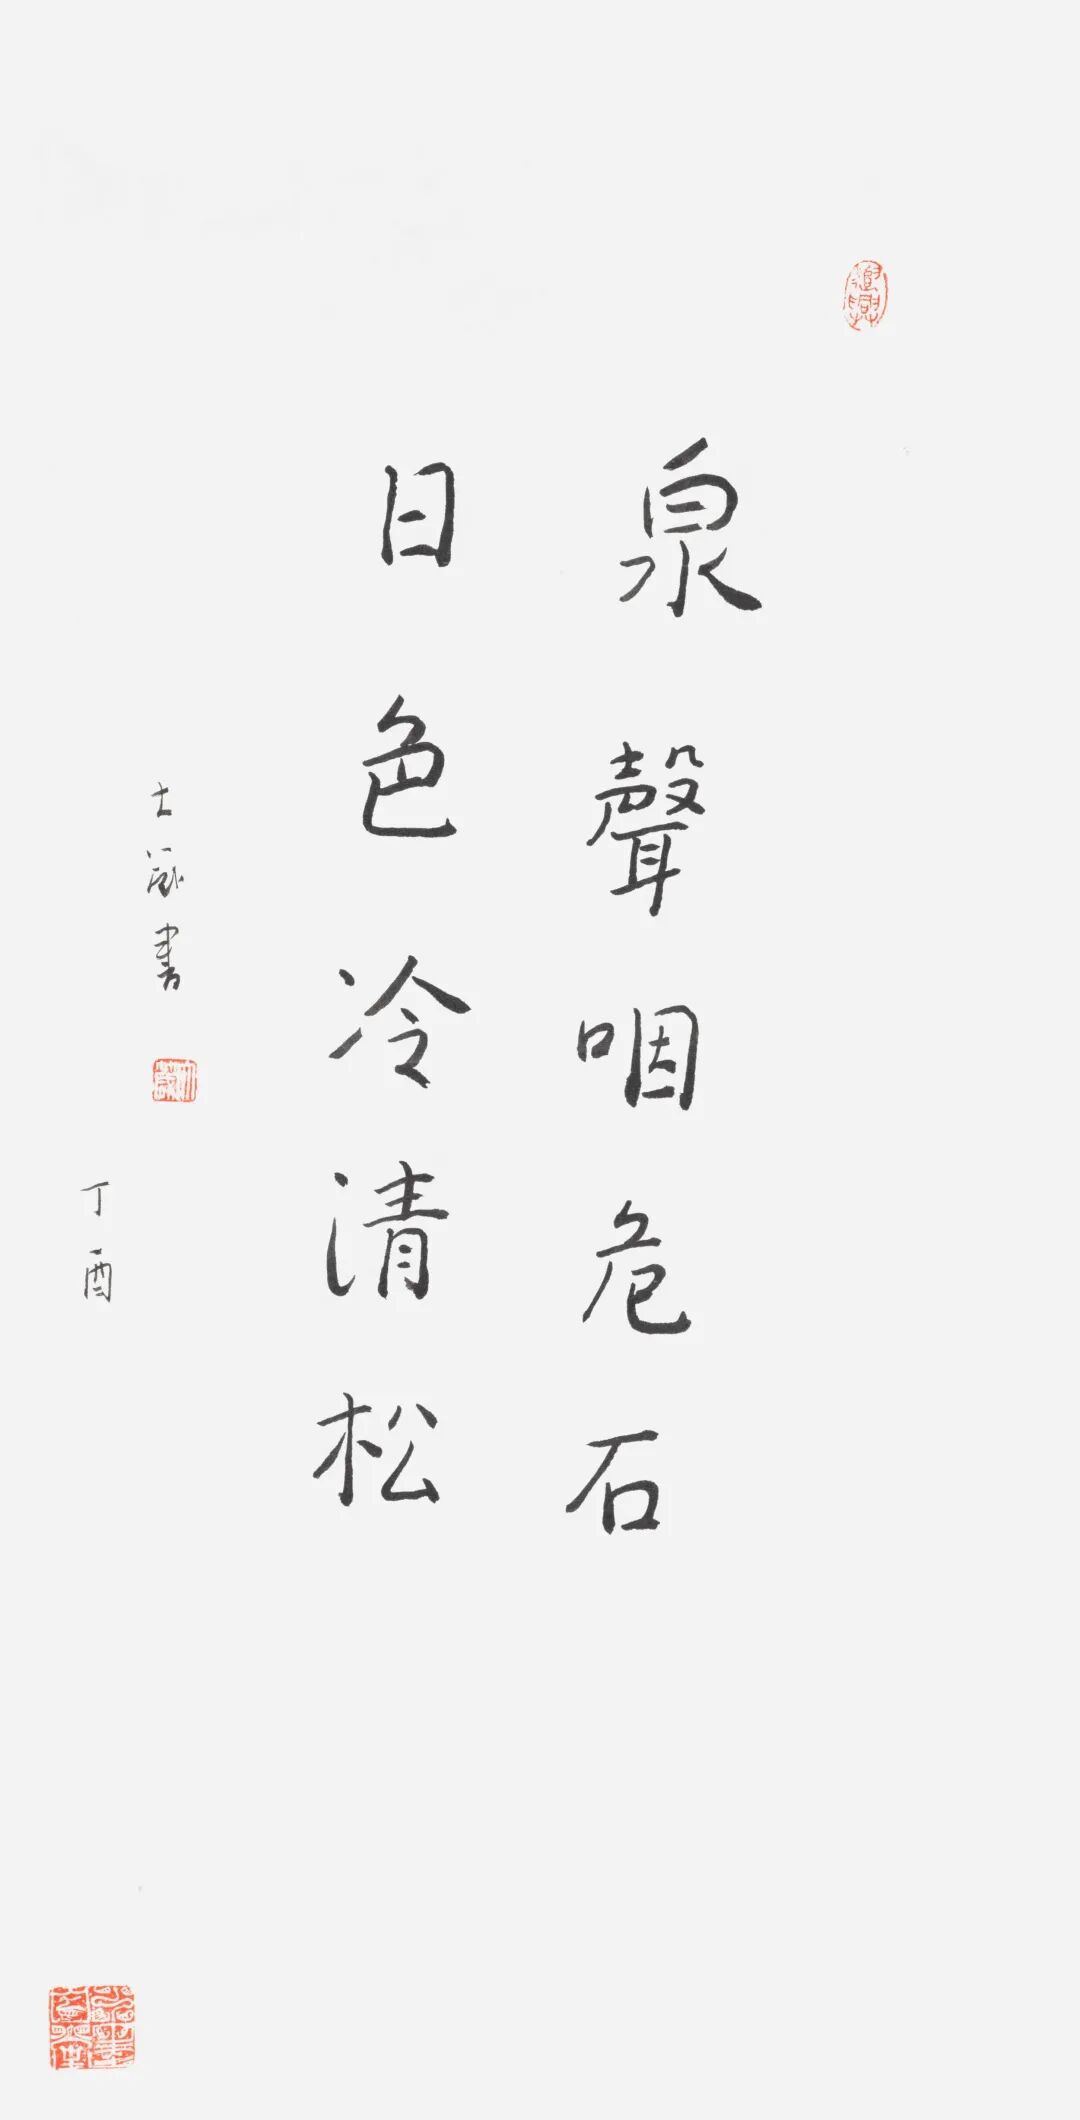 泉聲咽危石
日色冷清松
士書
丁酉